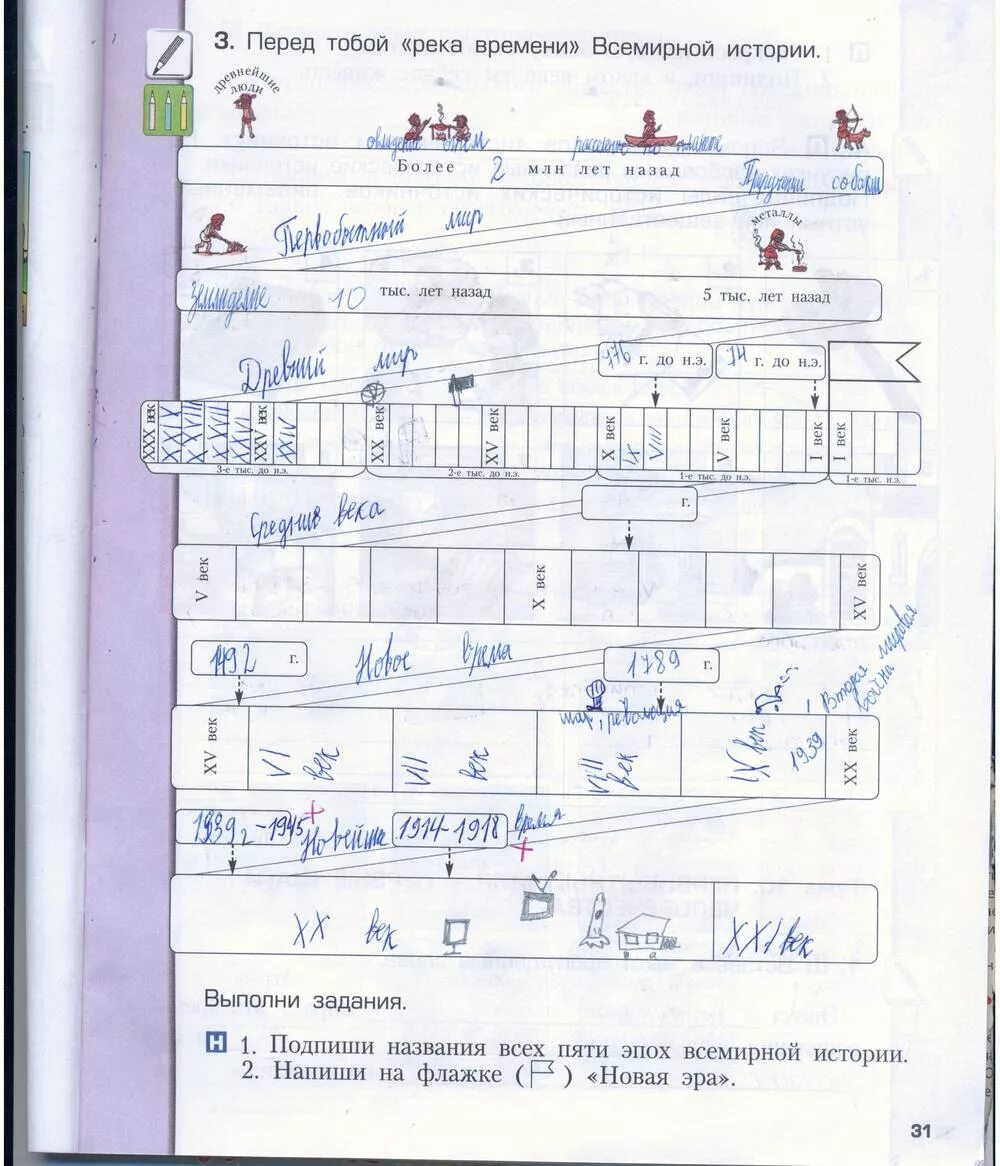 3. Перед тобой «река времени» Всемирной истории.
древнейшие
люди
овладение огнём
расселение по планете
Более 2 млн лет назад
Приручении собаки
Первобытный мир
металлы
Земледелие 10 тыс. лет назад
5 тыс. лет назад
Древний мир
776 г. до н.э.
74 г. до н.э.
XXX век
XXIX
XXVIII
XXVII
XXVI
XXV век
XXIV
XX век
XV век
X век
IX
VIII
V век
I век
I век
3-е тыс. до н.э.
2-е тыс. до н.э.
1-е тыс. до н.э.
1-е тыс. н.э.
Средние века
г.
V век
X век
XV век
1492 г.
Новое время
1789 г.
революция
Вторая мировая
война
1939
XV век
VI век
VII век
VIII век
IX век
XX век
1939г-1945
Новейше
1914-1918
время
XX век
XXI век
Выполни задания.
Н 1. Подпиши названия всех пяти эпох всемирной истории.
2. Напиши на флажке ( ) «Новая эра».
31